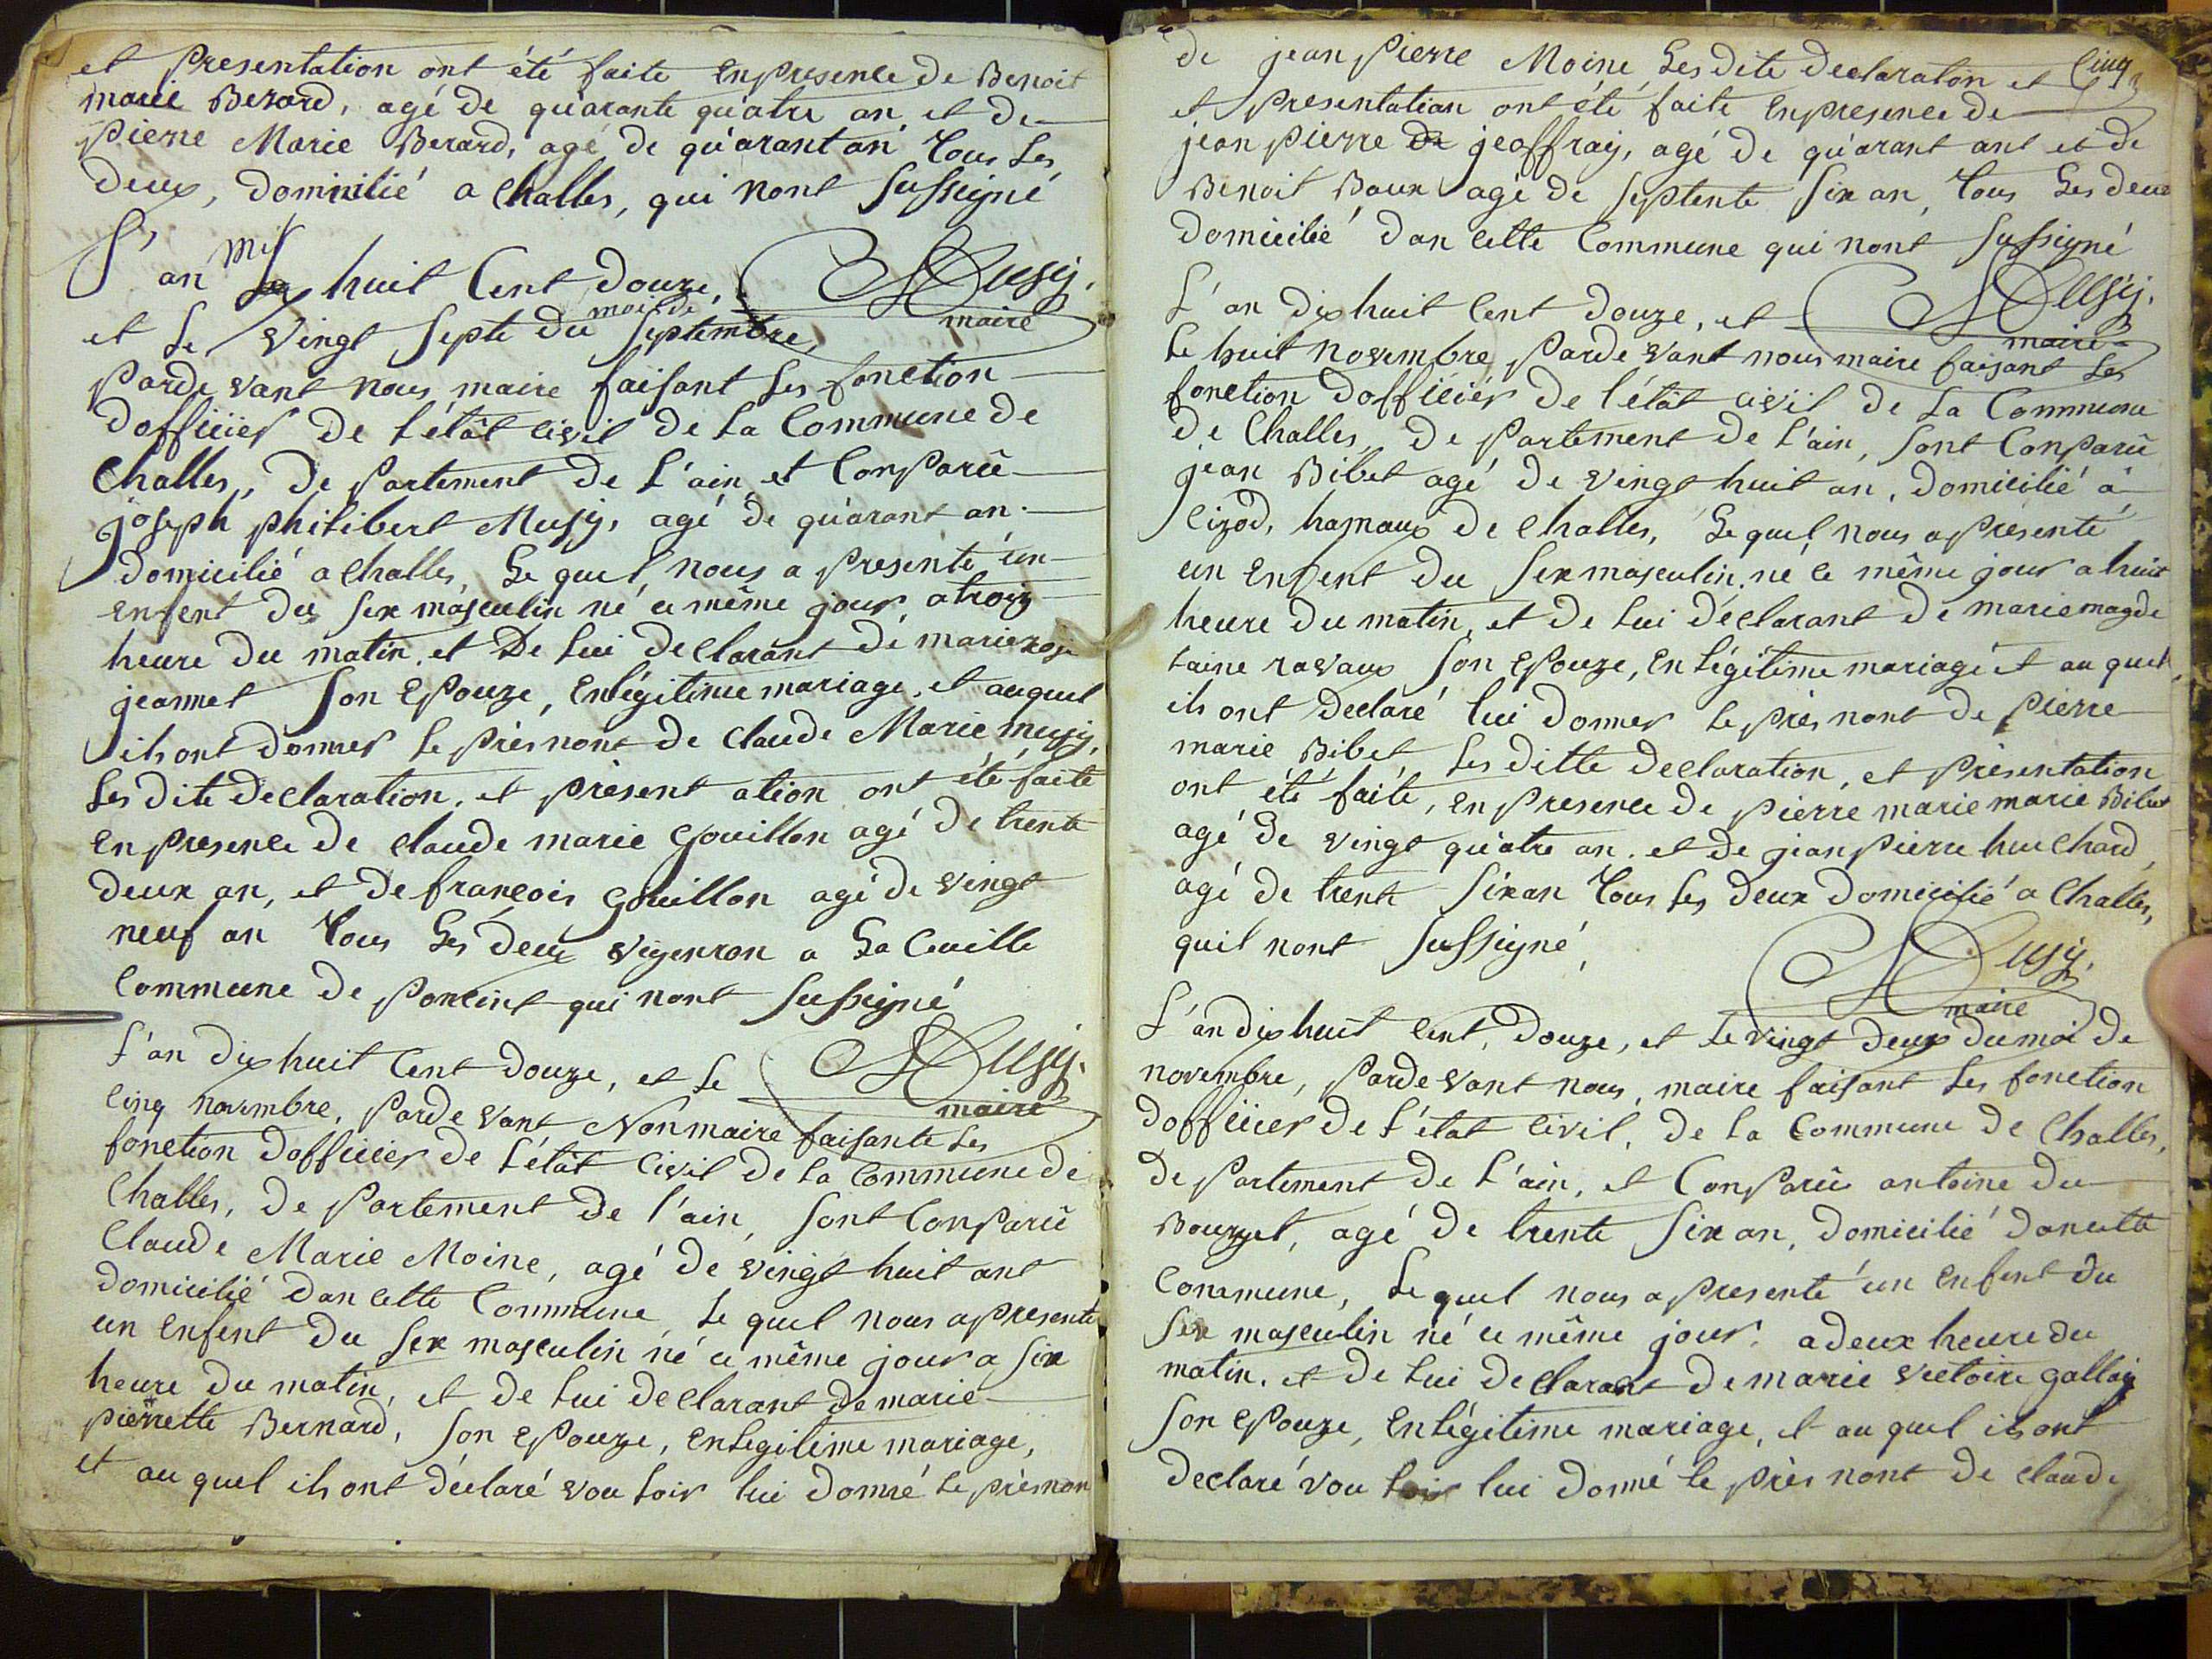 et presentation ont été faite en presence de Benoit
marie Berard, agé de quarante quatre an et de
pierre Marie Berard, agé de quarant an tous les
deux, domicilié a Challes, qui nont sussigné
L'an mil huit Cent douze,
Musy.
maire
et le vingt septe du mois de septembre,
parde vant nous maire faisant les fonction
dofficier de l'étât civil de la Commune de
Challes, de partement de l'ain et Conparû
joseph philibert Musy, agé de quarant an.
domicilié a Challes, Le quel nous a presenté un
enfent du sex masculin né ce même jour, a trois
heure du matin. et de lui declarant de marie rose
jeannet son epouze, en légitime mariage, et auquel
ils ont donner le près nont de Claude Marie musy,
les dite declaration, et présent ation ont été faite
en presence de Claude marie Gouillon agé de trente
deux an, et de françois Gouillon agé de vingt
neuf an tous les deux vigenron a la Cueille
Commune de poncint qui nont sussigné
L'an dix huit Cent douze, et le
Musy.
maire
Cinq novembre, parde vant Nonmaire faisante les
fonction dofficier de l'étât Civil de la Commune de
Challes, de partement de l'ain, sont Conparû
Claude Marie Moine, agé de vingt huit ant
domicilié dan cette Commune, le quel nous a presenté
un enfent du sex masculin né ce même jour a six
heure du matin, et de lui declarant de marie
pierrette Bernard, son epouze, en legitime mariage,
et au quel ils ont déclaré vou loir lui donné le près non
Cinq
de jean pierre Moine, Les dite declaraton et
et presentation ont été faite en presence de
jean pierre de jeoffray, agé de quarant ant et de
Benoit Baux agé de septente six an, tous les deux
domicilié dan cette Commune qui nont sussigné
L'an dix huit Cent douze, et
Musy.
maire
le huit novembre parde vant nous maire faisant les
fonction dofficiér de l'étât civil de la Commune
de Challes, de partement de l'ain, sont Conparû
jean Bibet agé de vingt huit an, domicilié à
Cizod, hamaux de Challes, Le quel nous a présenté
un enfent du sex masculin, né ce même jour a huit
heure du matin, et de lui déclarant de marie magde
laine ravaux son epouze, en légitime mariage et au quel,
ils ont declaré lui donner le près nont de pierre
marie Bibet, les ditte declaration, et présentation
ont été faite, en presence de pierre marie marie Bibet
agé de vingt quatre an. et de jean pierre huchard,
agé de trent six an tous les deux domicilié a Challes,
quil nont sussigné,
Musy.
maire
L'an dix huit Cent, douze, et le vingt deux du moi de
novembre, parde vant nous, maire faisant les fonction
dofficier de l'état Civil, de la Commune de Challes,
de partement de l'ain, et Conparû antoine du
Bourget, agé de trente six an, domicilié dan cette
Commune, le quel nous a presenté un enfent du
sex masculin né ce même jour. a deux heure du
matin, et de lui declarant de marie victoire gallay
son epouze, en légitime mariage, et au quel ils ont
declaré vou loir lui donné le près nont de Claude